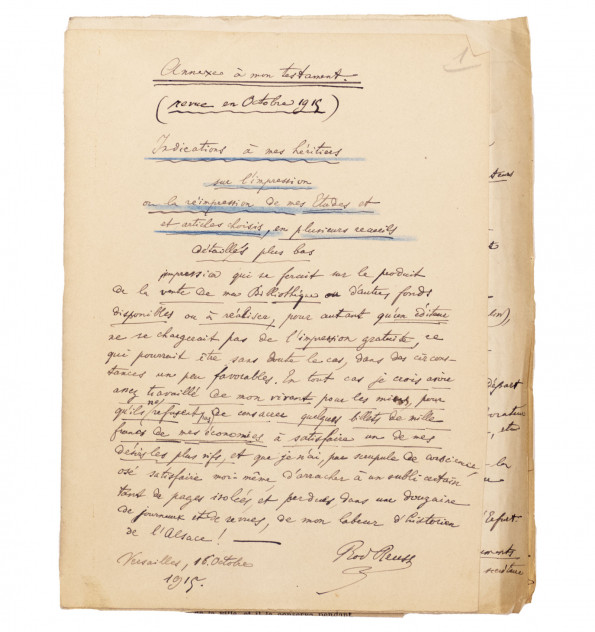 1
Annexe à mon testament.
(revue en Octobre 1915)
Indications à mes héritiers
sur l'impression
ou la réimpression de mes Etudes et
et articles choisis, en plusieurs recueils
détaillés plus bas
impression qui se ferait sur le produit
de la vente de ma Bibliothèque ou d'autres fonds
disponibles ou à réaliser, pour autant qu'un éditeur
ne se chargerait pas de l'impression gratuite, ce
qui pourrait être sans doute le cas, dans des circons-
tances un peu favorables. En tout cas je crois avoir
assez travaillé de mon vivant pour les miens, pour
qu'ils ne refusent pas de consacrer quelques billets de mille
francs de mes économies à satisfaire un de mes
désirs les plus vifs, et que je n'ai, par scrupule de conscience,
osé satisfaire moi-même d'arracher à un oubli certain
tant de pages isolées et perdues, dans une douzaine
de journaux et de revues, de mon labeur d'historien
de l'Alsace! —
Versailles, 16 Octobre
1915.
Rod Reuss
départ
Erfurt